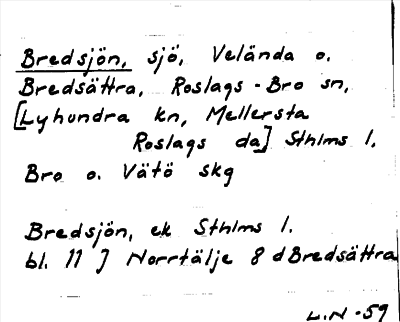 Bredsjön, sjö, Velända o.
Bredsättra, Roslags-Bro sn,
[Lyhundra kn, Mellersta
Roslags da] Sthlms l.
Bro o. Vätö skg
Bredsjön, ek Sthlms l.
bl. 11 J Norrtälje 8 d Bredsättra
L.N -59